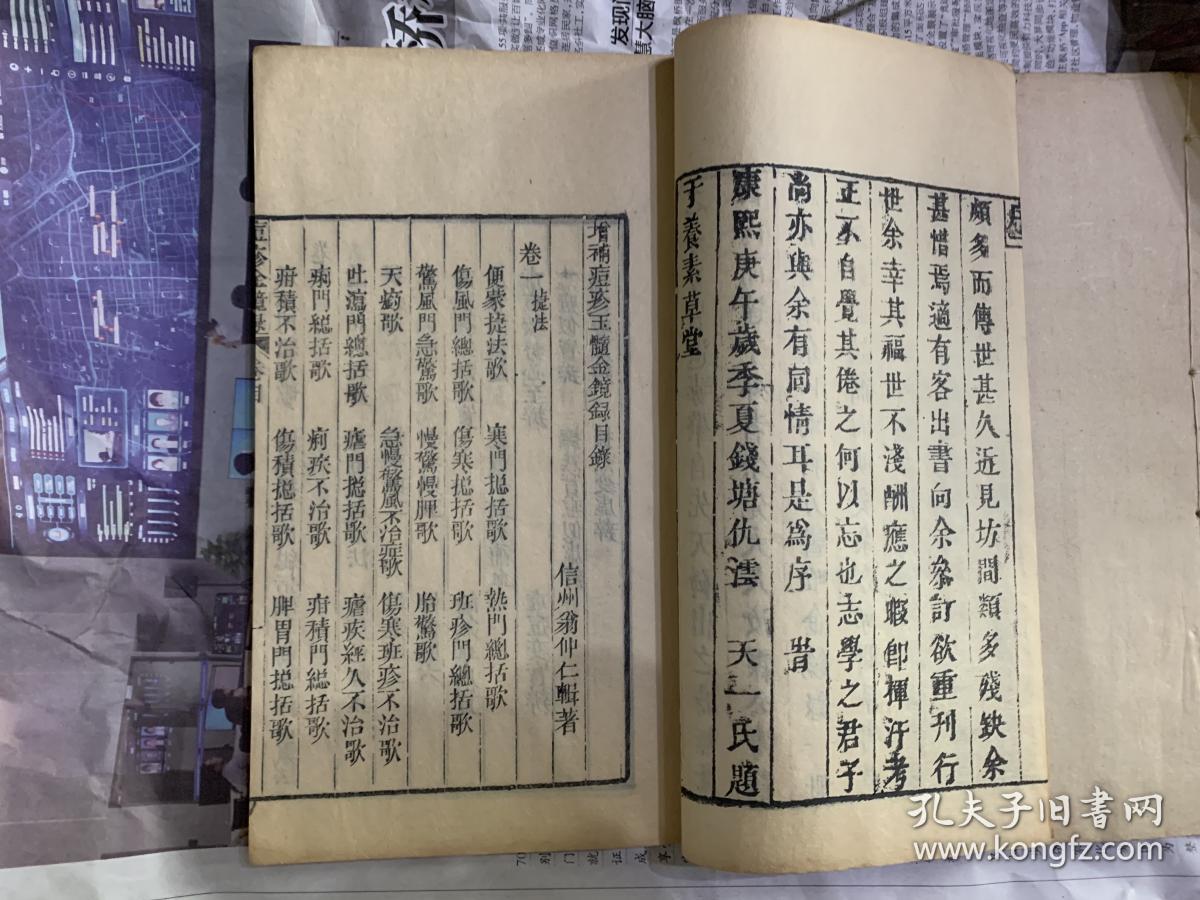 頗多而傳世甚久近見坊間類多殘缺余
甚惜焉適有客出書向余叅訂欲重刊行
世余幸其福世不淺酬應之暇卽揮汗考
正不自覺其倦之何以忘也志學之君子
尚亦與余有同情耳是爲序 旹
康熙庚午歲季夏錢塘仇澐 天一氏題
于養素草堂
增補痘疹玉髓金鏡録目錄
信州翁仲仁輯著
卷一 捷法
便蒙捷法歌 寒門摠括歌 熱門總括歌
傷風門總括歌 傷寒摠括歌 班疹門總括歌
驚風門急驚歌 慢驚慢脾歌 胎驚歌
天蒴歌 急慢驚風不治症歌 傷寒班疹不治歌
吐瀉門總括歌 瘧門摠括歌 瘧疾經久不治歌
痢門總括歌 痢疾不治歌 疳積門総括歌
疳積不治歌 傷積摠括歌 脾胃門摠括歌
痘疹金鏡录
一
发现
慧大脑
孔夫子旧书网
www.kongfz.com